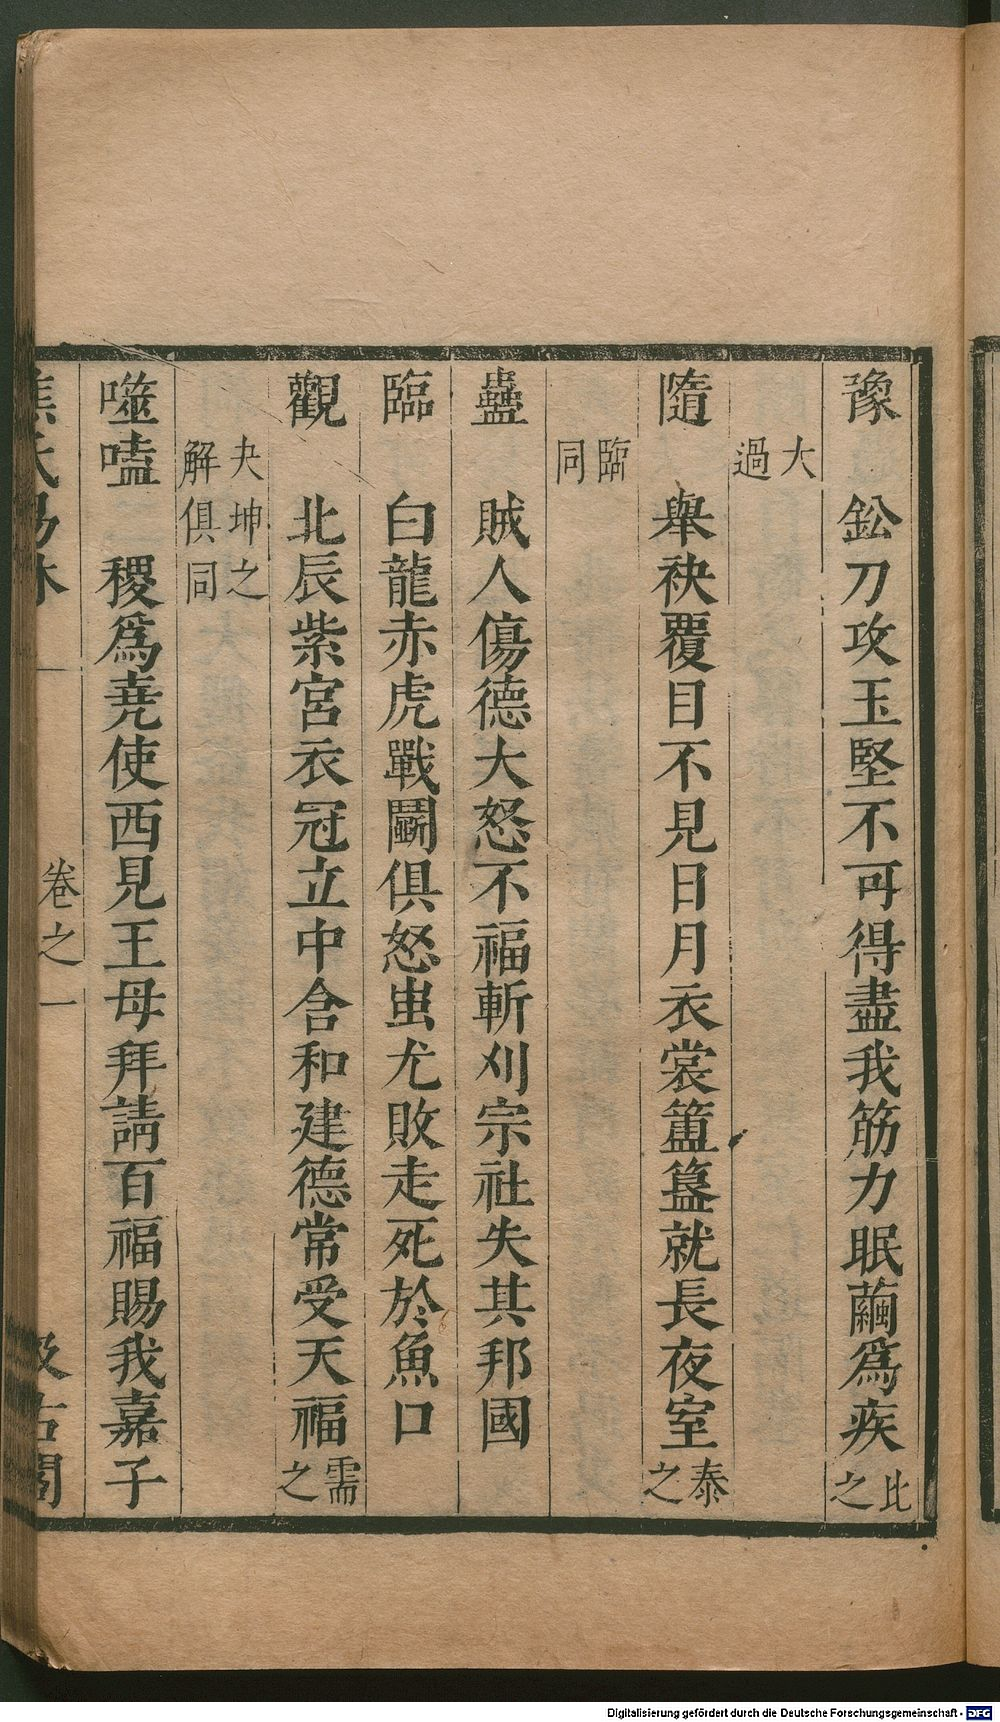 豫 鈆刀攻玉堅不可得盡我筋力眠繭爲疾比之
大過
隨 舉袂覆目不見日月衣裳簠簋就長夜室泰之
臨同
蠱 賊人傷德大怒不福斬刈宗社失其邦國
臨 白龍赤虎戰鬭俱怒蚩尤敗走死於魚口
觀 北辰紫宮衣冠立中含和建德常受天福需之
夬坤之解俱同
噬嗑 稷爲堯使西見王母拜請百福賜我嘉子
焦氏易林 一 卷之一 汲古閣
Digitalisierung gefördert durch die Deutsche Forschungsgemeinschaft - DFG